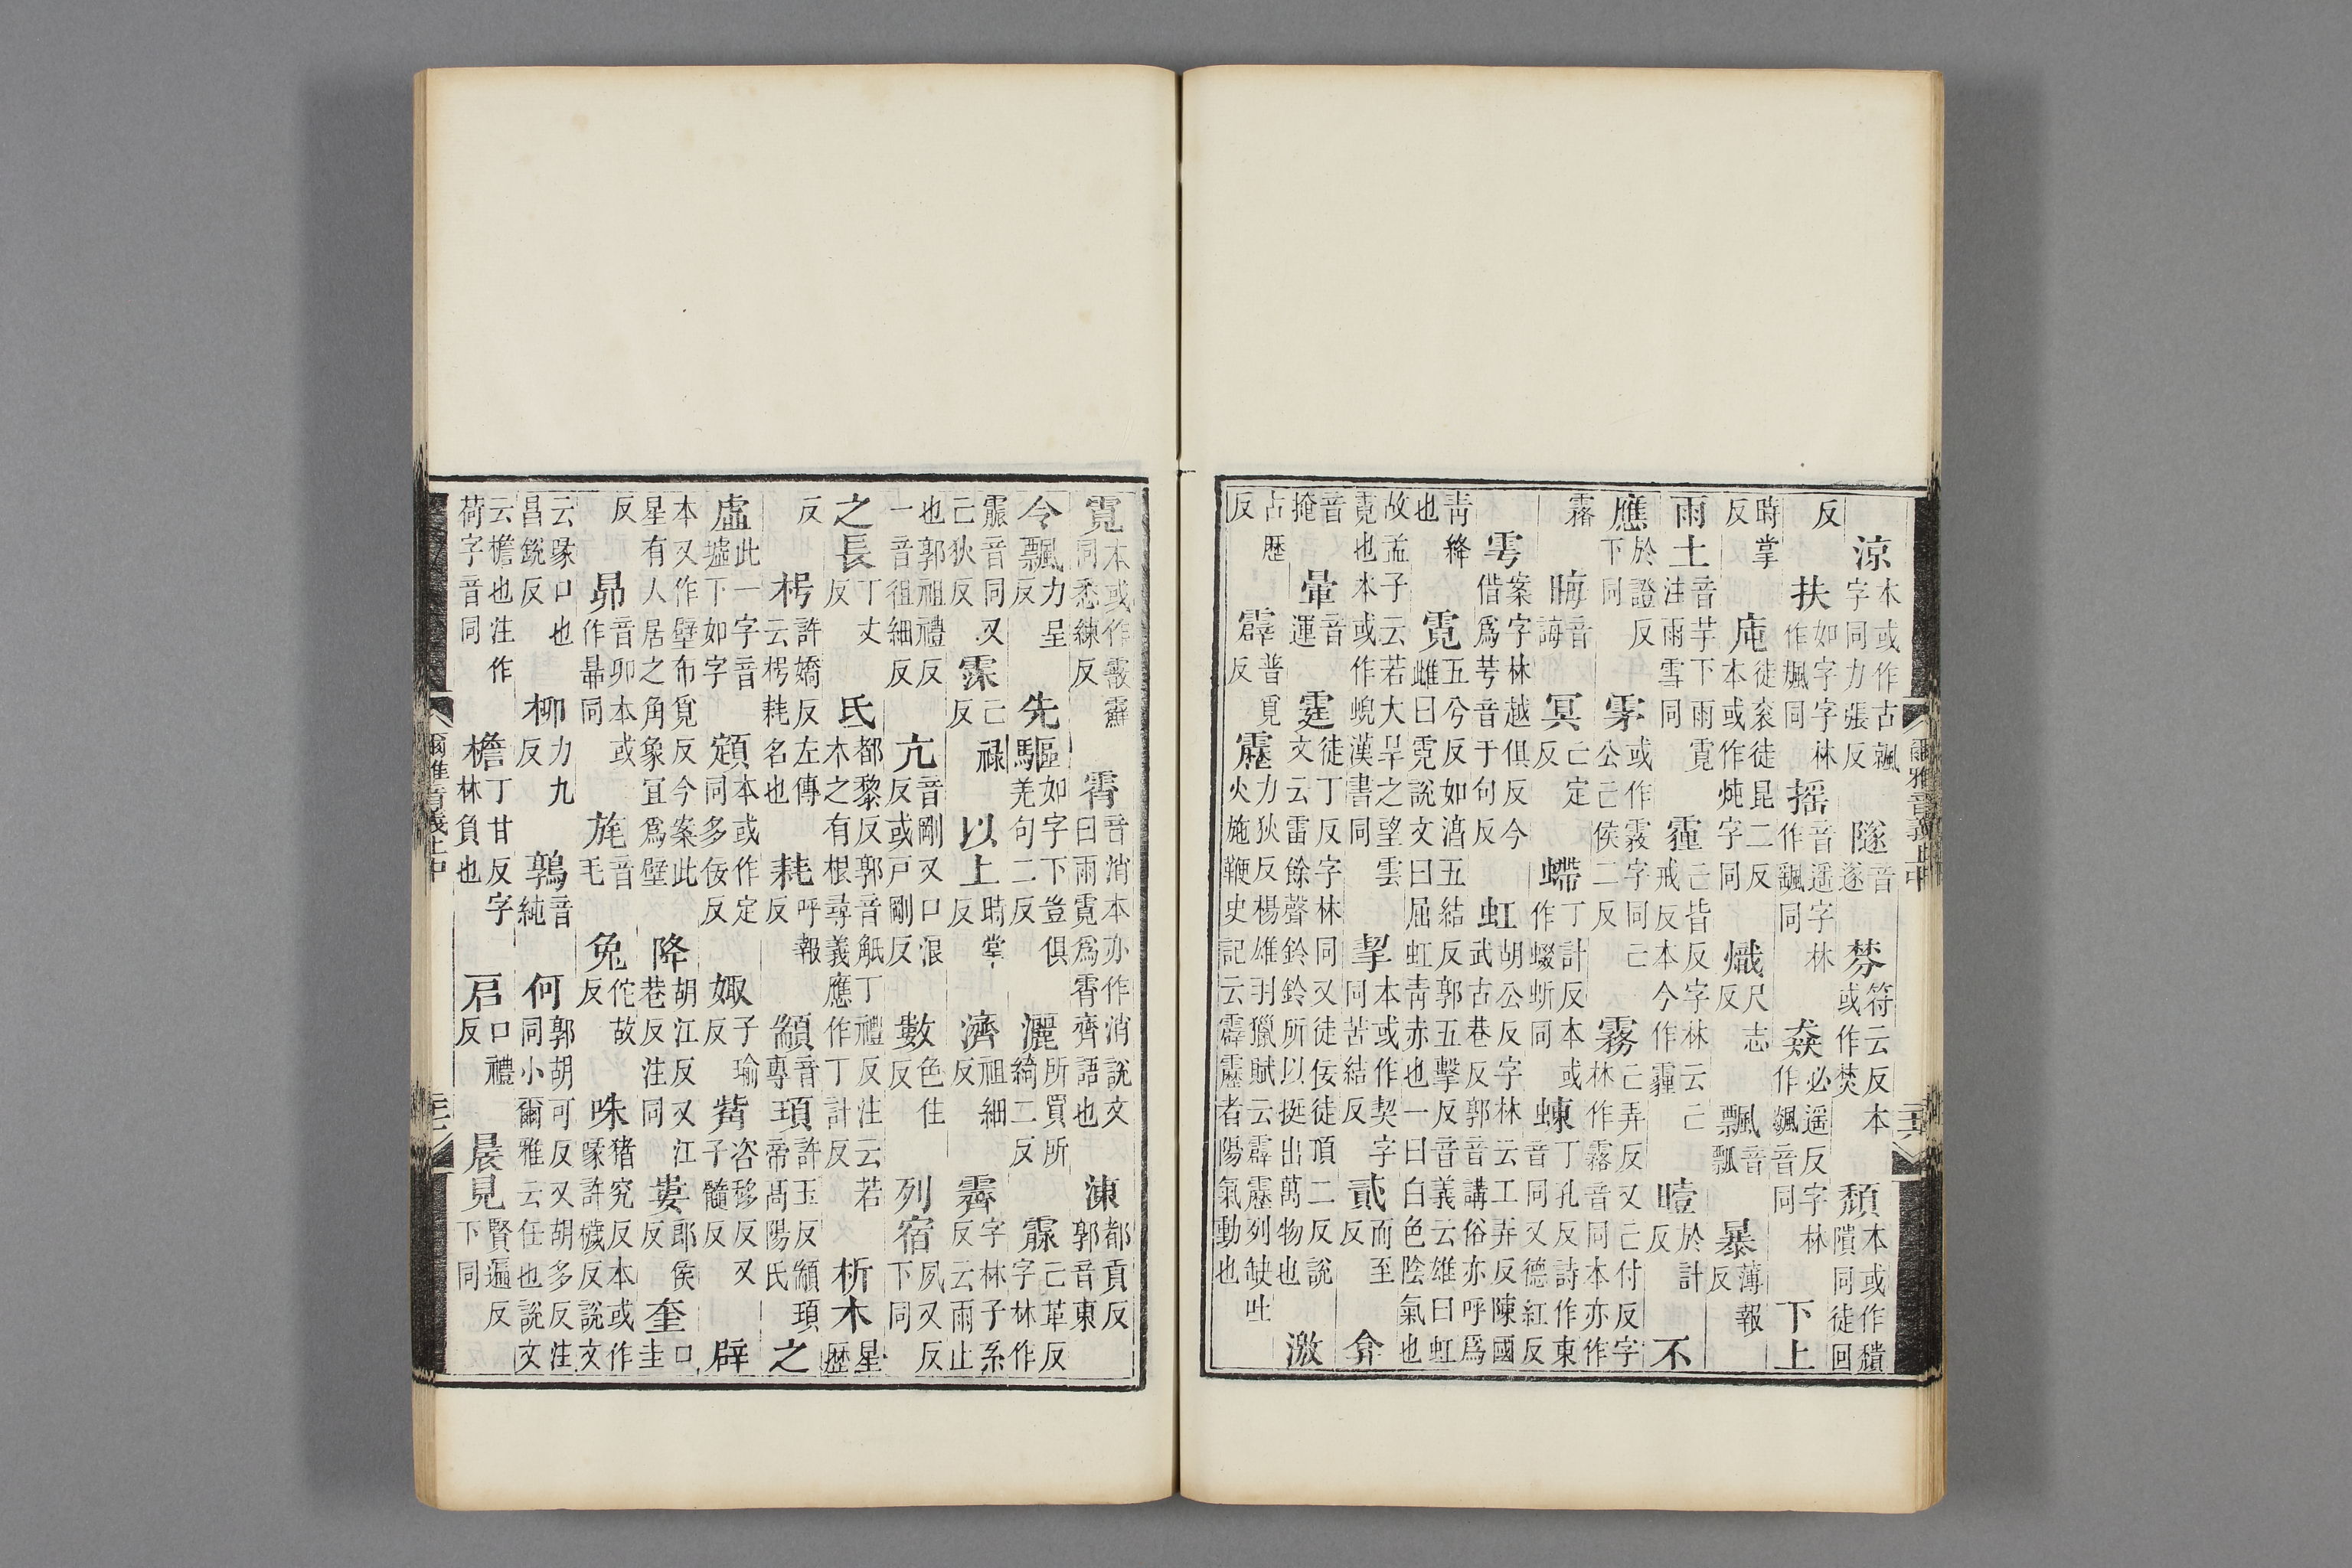 涼本或作古飆字同力張反 隧音遂 棼符云反本或作焚 頹本或作穨隤同徒回
反 扶如字字林作颫同 搖音遥字林作颻同 猋必遥反字林作飆音同 下上
時掌反 庉徒衮徒昆二反本或作炖字同 熾尺志反 飄音瓢 暴薄報反
雨土音芋下雨霓注雨雪同 霾亡皆反字林云亡戒反本今作霾 曀於計反 不
應於證反下同 雺或作霧字同亡公亡侯二反 霧亡弄反又亡付反字林作霿音同本亦作
霿 晦音誨 冥亡定反 螮丁計反本或作蝃蚚同 蝀丁孔反詩作東音同又德紅反
雩案字林越俱反今借爲芌音于句反 虹胡公反字林云工弄反陳國武古巷反郭音講俗亦呼爲
青絳也 霓五兮反如湻五結反郭五擊反音義云雄曰虹雌曰霓說文曰屈虹青赤也一曰白色陰氣也
故孟子云若大旱之望雲霓也本或作蜺漢書同 挈本或作契字同苦結反 貳而至反 弇
音掩 暈音運 霆徒丁反字林同又徒佞徒頂二反說文云雷餘聲鈴鈴所以挺出萬物也 激
古歷反 霹普覓反 靂力狄反楊雄羽獵賦云霹靂列缺吐火施鞭史記云霹靂者陽氣動也
爾雅音義上中
霓本或作霰同悉練反 霄音消本亦作消說文曰雨霓爲霄齊語也 涷都貢反郭音東
令飄力呈反 先驅如字下豈俱羌句二反 灑所買所綺二反 霢亡革反字林作
霡音同又亡狄反 霂亡祿反 以上時掌反 濟祖細反 霽字林子系反云雨止
也郭祖禮反一音徂細反 亢音剛又口浪反或戶剛反 數色住反 列宿夙又反下同
之長丁丈反 氐都黎反郭音觝丁禮反注云若木之有根尋義應作丁計反 析木星歷
反 枵許嬌反左傳云枵耗名也 耗呼報反 顓音專 頊許玉反顓頊帝高陽氏 之
虛此一字音墟下如字 顁本或作定同多佞反 娵子瑜反 訾咨移反又子髓反 辟
本又作壁布覓反今案此星有人居之角象宜爲壁 降胡江反又江巷反注同 婁郎侯反 奎口圭
反 昴音卯本或作同 旄音毛 兔佗故反 咮猪究反本或作喙許穢反說文
云喙口也昌銳反 柳力九反 鶉音純 何郭胡可反又胡多反注同小爾雅云任也說文
云檐也注作荷字音同 檐丁甘反字林負也 启口禮反 晨見賢遍反下同
爾雅音義上中